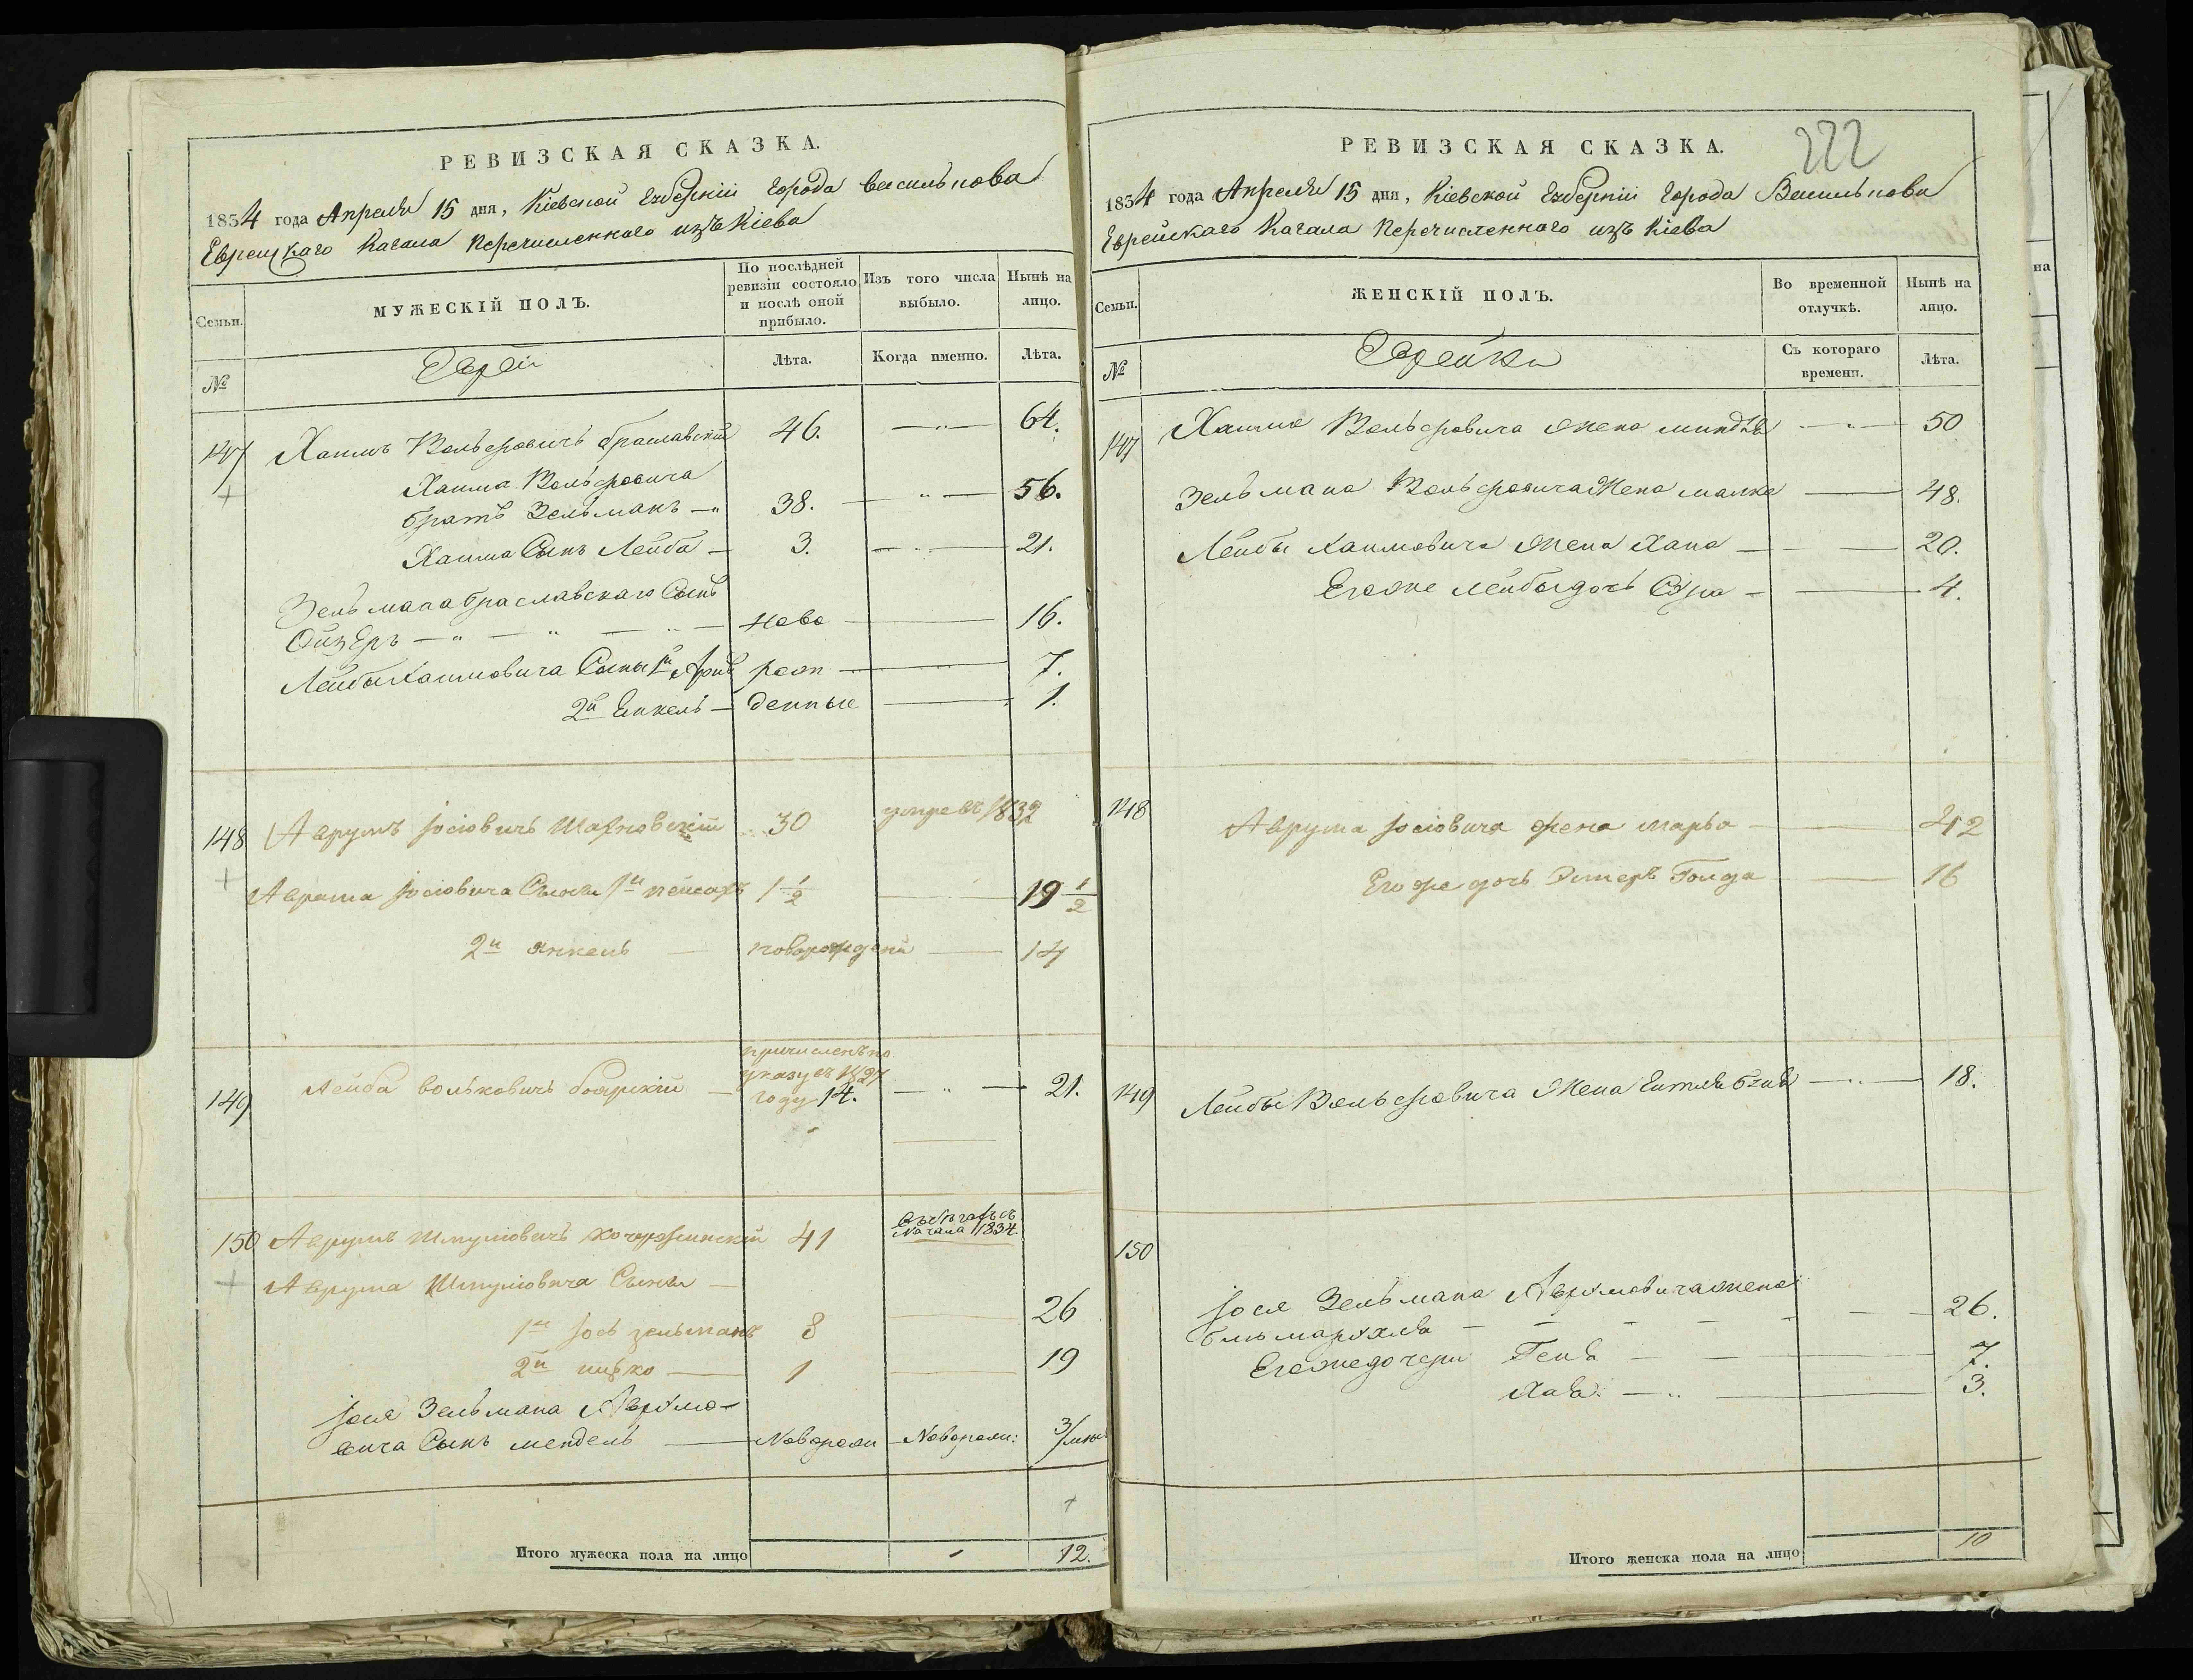 РЕВИЗСКАЯ СКАЗКА.
1834 года Апреля 15 дня, Кіевской Губерніи Города Василькова
Еврейскаго Кагала Перечисленнаго изъ Кіева
Семьи.
МУЖЕСКІЙ ПОЛЪ.
По послѣдней ревизіи состояло и послѣ оной прибыло.
Изъ того числа выбыло.
Нынѣ на лицо.
№
Евреи
Лѣта.
Когда именно.
Лѣта.
147 Хаимъ Вольфовичъ Браславскій 46. — " — 64.
Хаима Вольфовича
братъ Зельманъ — " 38. — " — 56.
Хаима Сынъ Лейба — 3. — " — 21.
Зельмана Браславскаго Сынъ
Ойзеръ — " — " — " — ново — 16.
Лейбы Хаимовича Сыны 1й рож — 7.
2й Енкель — денные — 1.
148 Аврумъ Іосіовичъ 30 умре въ 1832
Аврума Іосіовича Сыны 1й пейсахъ 1 1/2 — 19 1/2
2й янкель — новорожденый — 14
149 Лейба вольковичъ боярскій —
причисленъ по
указу въ 1827
году 14. — " — 21.
150 Аврумъ Шмуліовичъ 41
въ бегахъ съ
начала 1834.
Аврума Шмуліовича Сыны —
1й Іось зельманъ 8 — 26
2й ицко — 1 — 19
Іося Зельмана Аврумо-
вича Сынъ мендель — Новорожд — Новорожд: 3/мѣс
Итого мужеска пола на лицо 12.
РЕВИЗСКАЯ СКАЗКА.
222
1834 года Апреля 15 дня, Кіевской Губерніи Города Василькова
Еврейскаго Кагала Перечисленнаго изъ Кіева
Семьи.
ЖЕНСКІЙ ПОЛЪ.
Во временной отлучкѣ.
Нынѣ на лицо.
№
Еврейки
Съ котораго времени.
Лѣта.
147 Хаима Вольфовича Жена миндля — " — 50
Зельмана Вольфовича Жена малка — 48.
Лейбы Хаимовича Жена Хана — 20.
Егоже Лейбы дочь Сура — 4.
148 Аврума Іосіовича жена марья — 42
Его же дочь Эстеръ Голда — 16
149 Лейбы Вольфовича Жена — " — 18.
150
Іося Зельмана Аврумовича жена — 26.
Егоже дочери Геня — 7.
Хава — " — 3.
Итого женска пола на лицо 10